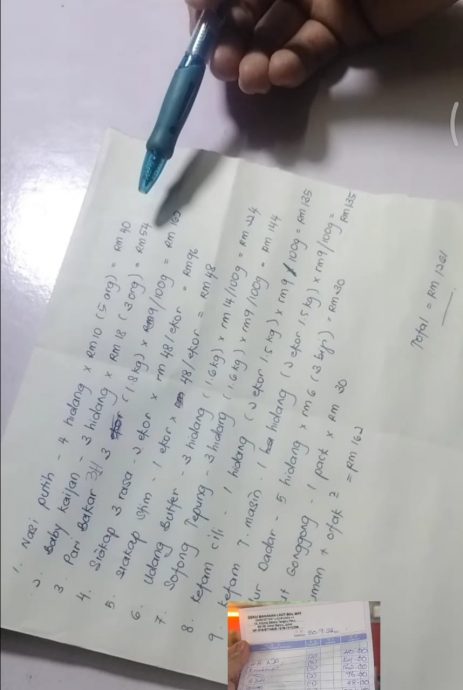 1. Nasi putih - 4 hidang x RM10 (5 org) = RM 40
2 Baby kailan - 3 hidang x RM 18 (3 org) = RM54
3. Pari Bakar 3 ekor (1.8kg) x RM9/100g = RM 162
4. Siakap 3 rasa - 2 ekor x rm 48/ekor = RM96
5. Siakap Stim - 1 ekor x 48/ekor = RM 48
6. Udang Butter - 3 hidang (1.6kg) x rm 14/100g = RM 224
7. Sotong Tepung - 3 hidang (1.6kg) x rm9/100g = RM 144
8. Ketam cili - 1 hidang (2 ekor 1.5kg) x rm9/100g = RM 135
9 Ketam T. masin - 1 hidang (2 ekor 1.5kg) x rm9/100g = RM 135
Dadar - 5 hidang x rm 6 (3 biji) = RM30
Gonggong - 1 pack x RM 30
+ otak2 = RM 162
Total = RM 1261